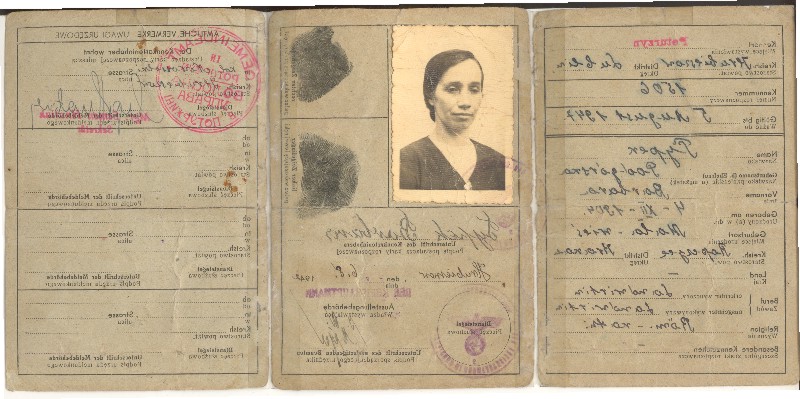 Poturzyn
Kennort
Miejsce wystawienia
Kreis Hrubieszow Distrikt Lublin
Starostwo powiat. Okręg
Kennummer 1506
Numer rozpoznawczy
Gültig bis 5 August 1947
Ważna do
Name Typek
Nazwisko
Geburtsname (b. Ehefrau) Podgórska
Nazwisko panieńskie (u mężatki)
Vorname Barbara
Imię
Geboren am 4-XII-1904
Urodzony (a) w dn.
Geburtsort Mała-wieś
Miejsce urodzenia
Kreis Distrikt
Starostwo pow. Okręg
Land
Kraj
Beruf erlernter Landwirtin
Zawód wyuczony
ausgeübter Landwirtin
wykonywany
Religion Röm-kath.
Wyznanie
Besondere Kennzeichen
Szczególne znaki rozpoznawcze
Typek Barbara
Unterschrift des Kennkarteninhabers
Podpis posiadacza karty rozpoznawczej
Hrubieszow den 6.8. 1942
DER KREISHAUPTMANN
Ausstellungsbehörde
Władza wystawiająca
Dienstsiegel
Pieczęć służbowa
Unterschrift des vollziehenden Beamten
Podpis urzędnika
AMTLICHE VERMERKE UWAGI URZĘDOWE
Der Kennkarteninhaber wohnt
Posiadacz karty rozpoznawczej mieszka
in
w
Strasse
ulica
Kreis
Starostwo powiat.
Dienstsiegel
Pieczęć służbowa
Unterschrift der Meldebehörde
Podpis urzędu meldunkowego
ab
od
in
w
Strasse
ulica
Kreish.
Starostwo powiat.
Dienstsiegel
Pieczęć służbowa
Unterschrift der Meldebehörde
Podpis urzędu meldunkowego
ab
od
in
w
Strasse
ulica
Kreish.
Starostwo powiat.
Dienstsiegel
Pieczęć służbowa
Unterschrift der Meldebehörde
Podpis urzędu meldunkowego
ab
od
in
w
Strasse
ulica
Kreish.
Starostwo powiat.
Dienstsiegel
Pieczęć służbowa
Unterschrift der Meldebehörde
Podpis urzędu meldunkowego